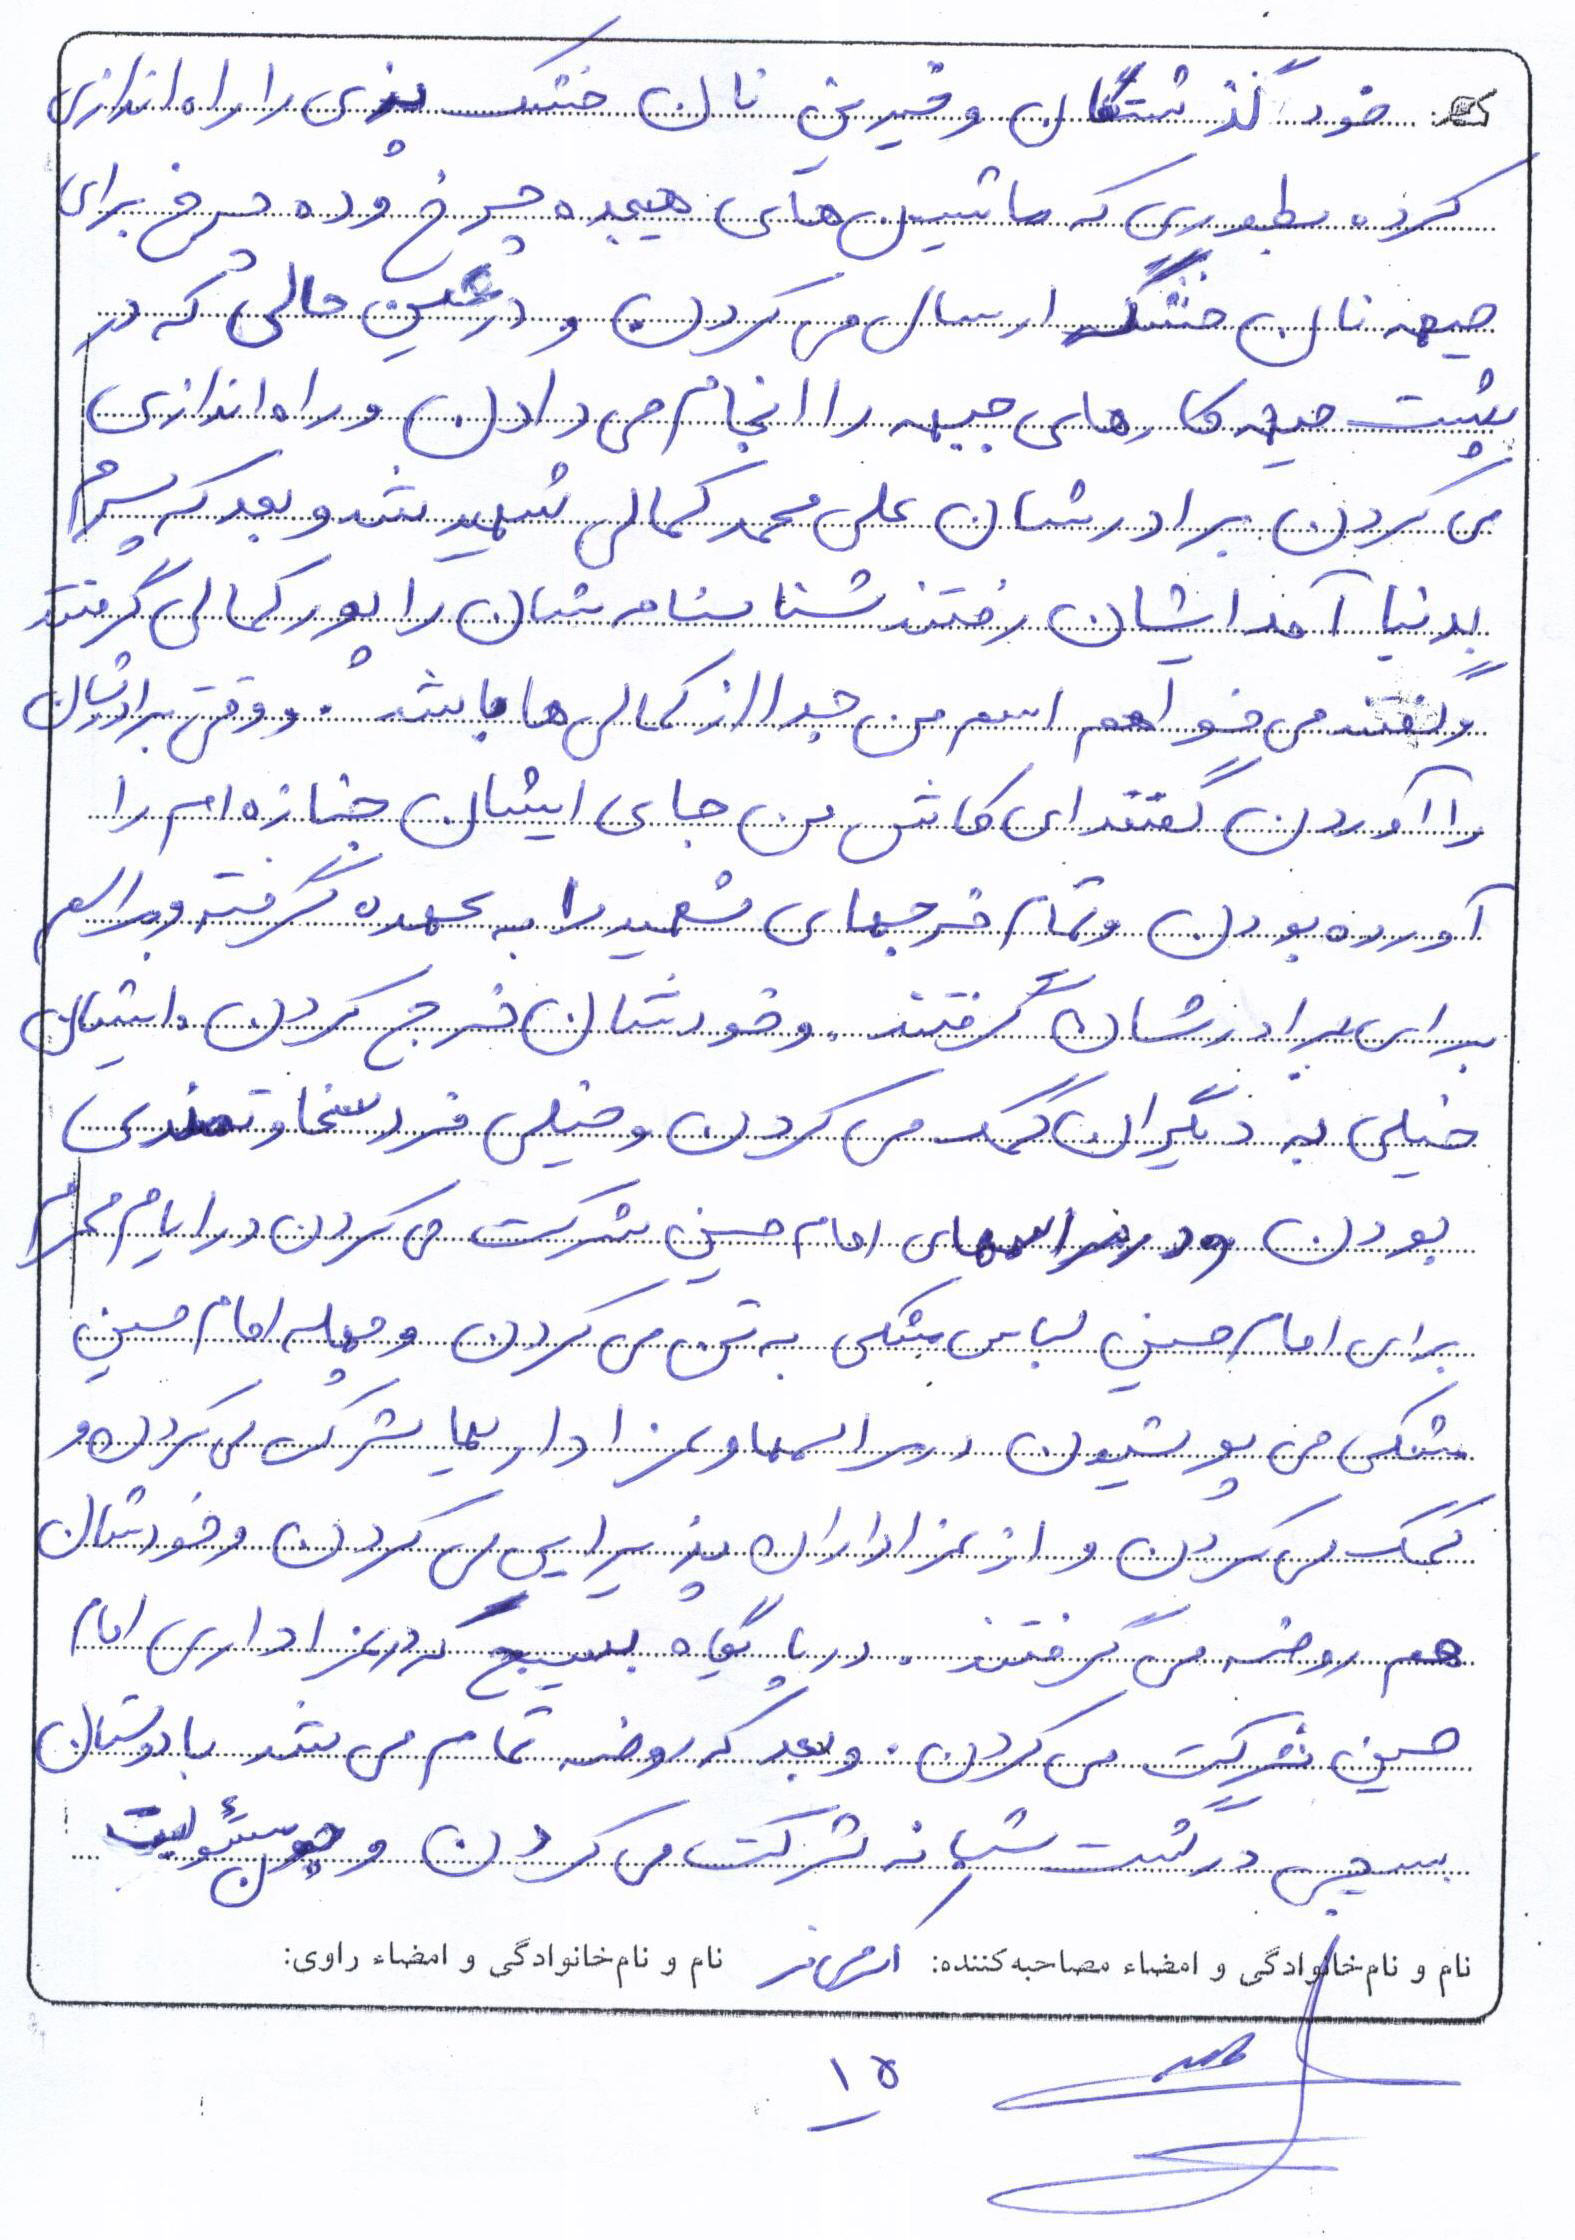 که خود گذشتگان و خیرین نان خشک پزی را راه اندازی
کرده بطوری که ماشین های هیجده چرخ و ده چرخ برای
جبهه نان خشک ارسال می کردن و در عین حالی که در
پشت جبهه کارهای جبهه را انجام می دادن و راه اندازی
می کردن برادرشان علی محمد کمالی شهید شد و بعد که پسرم
بدنیا آمد ایشان رفتند شناسنامه شان را پور کمالی گرفتند
و گفتند می خواهم اسم من جدا از کمالی ها باشد . و وقتی برادرشان
را آوردن گفتند ای کاش من جای ایشان جنازه ام را
آورده بودن و تمام خرجهای شهید را به عهده گرفته و مراسم
برای برادرشان گرفتند . و خودشان خرج کردن . ایشان
خیلی به دیگران کمک می کردن و خیلی فرد سخاوتمندی
بودن و در مراسمهای امام حسین شرکت می کردن در ایام محرم
برای امام حسین لباس مشکی به تن می کردن و چهله امام حسین
مشکی می پوشیدن در مراسمها و عزاداریها شرکت می کردن و
کمک می کردن و از عزاداران پذیرایی می کردن و خودشان
هم روضه می گرفتند . در پایگاه بسیج که در عزاداری امام
حسین شرکت می کردن . و بعد که روضه تمام می شد با دوستان
بسیجی در گشت شبانه شرکت می کردن و چون مسئولیت
نام و نام‌خانوادگی و امضاء مصاحبه کننده: نام و نام‌خانوادگی و امضاء راوی:
۱۵